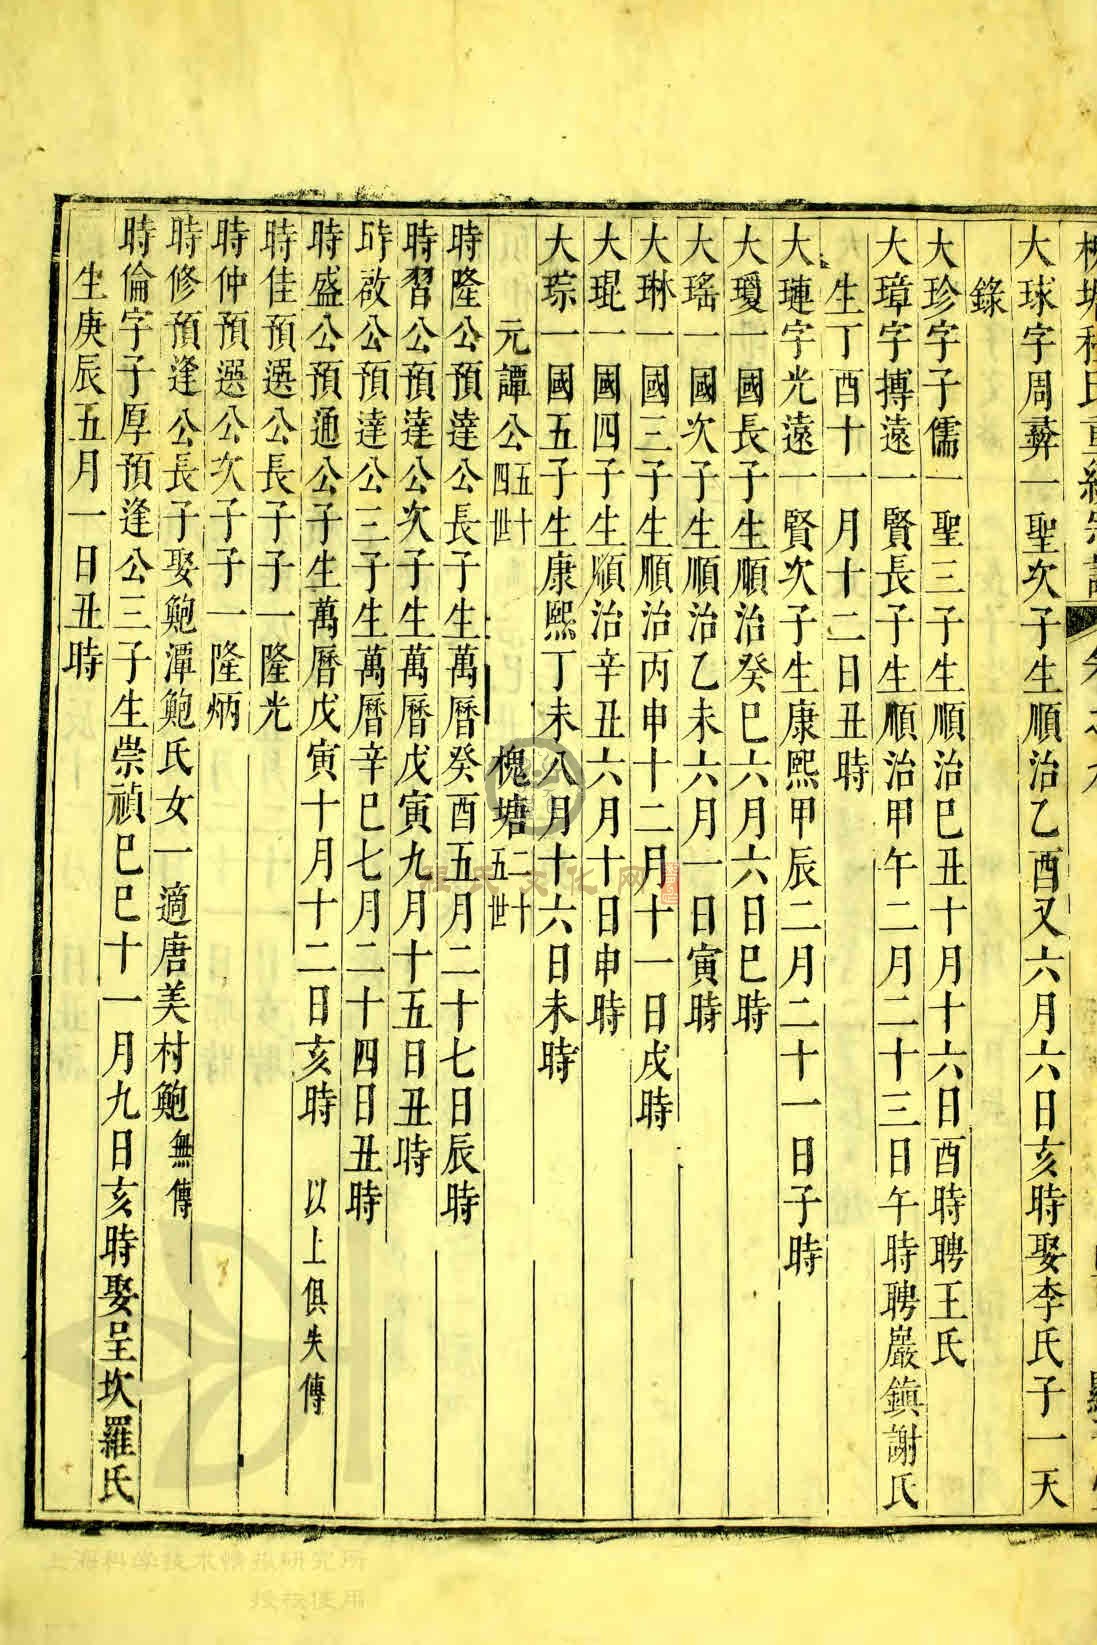 槐塘程氏重續宗譜 卷之
大球字周彝一聖次子生順治乙酉又六月六日亥時娶李氏子一天
錄
大珍字子儒一聖三子生順治己丑十月十六日酉時聘王氏
大璋字搏遠一賢長子生順治甲午二月二十三日午時聘巖鎮謝氏
大璉字光遠一賢次子生康熙甲辰二月二十一日子時
生丁酉十一月十二日丑時
大瓊一國長子生順治癸巳六月六日巳時
大瑤一國次子生順治乙未六月一日寅時
大琳一國三子生順治丙申十二月十一日戌時
大琨一國四子生順治辛丑六月十日申時
大琮一國五子生康熙丁未八月十六日未時
元譚公五十四世 槐塘二十五世
時隆公預達公長子生萬曆癸酉五月二十七日辰時
時習公預達公次子生萬曆戊寅九月十五日丑時
時啟公預達公三子生萬曆辛巳七月二十四日丑時
時盛公預通公子生萬曆戊寅十月十二日亥時 以上俱失傳
時佳預選公長子子一隆光
時仲預選公次子子一隆炳
時修預逢公長子娶鮑潭鮑氏女一適唐美村鮑無傳
時倫字子厚預逢公三子生崇禎己巳十一月九日亥時娶呈坎羅氏
生庚辰五月一日丑時
程氏文化网
上海科学技术情报研究所
授权使用